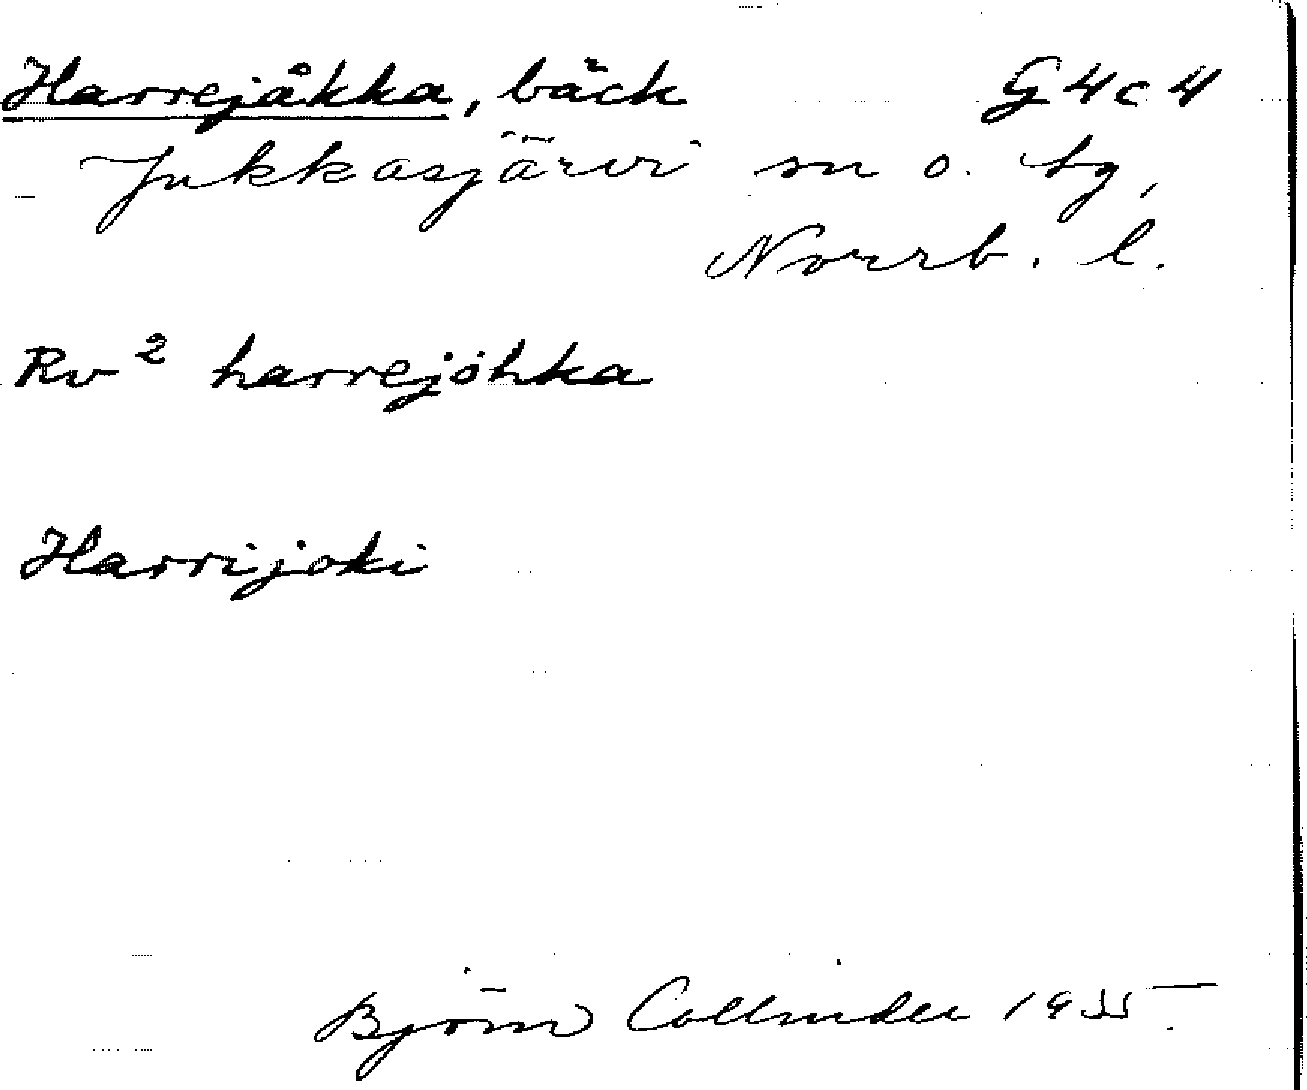 Harrejåkka, bäck G4c4
Jukkasjärvi sn o. tg,
Norrb. l.
Rv² harrejòhka
Harrijoki
Björn Collinder 1955.